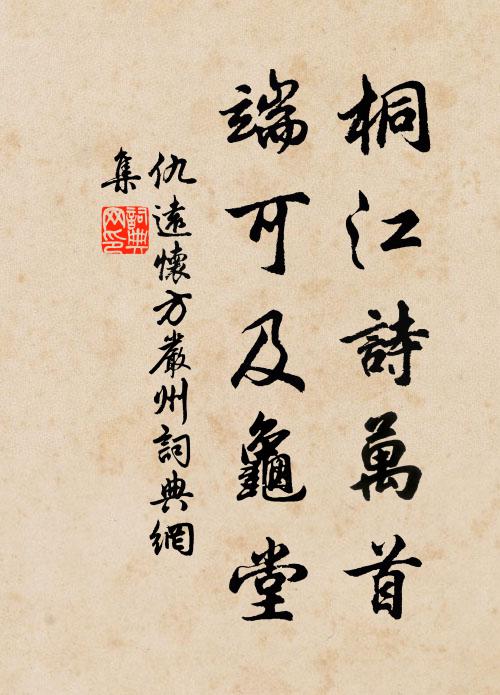 桐江詩萬首
端可及龜堂
仇遠懷方嚴州詞典網
集
詞典
网印